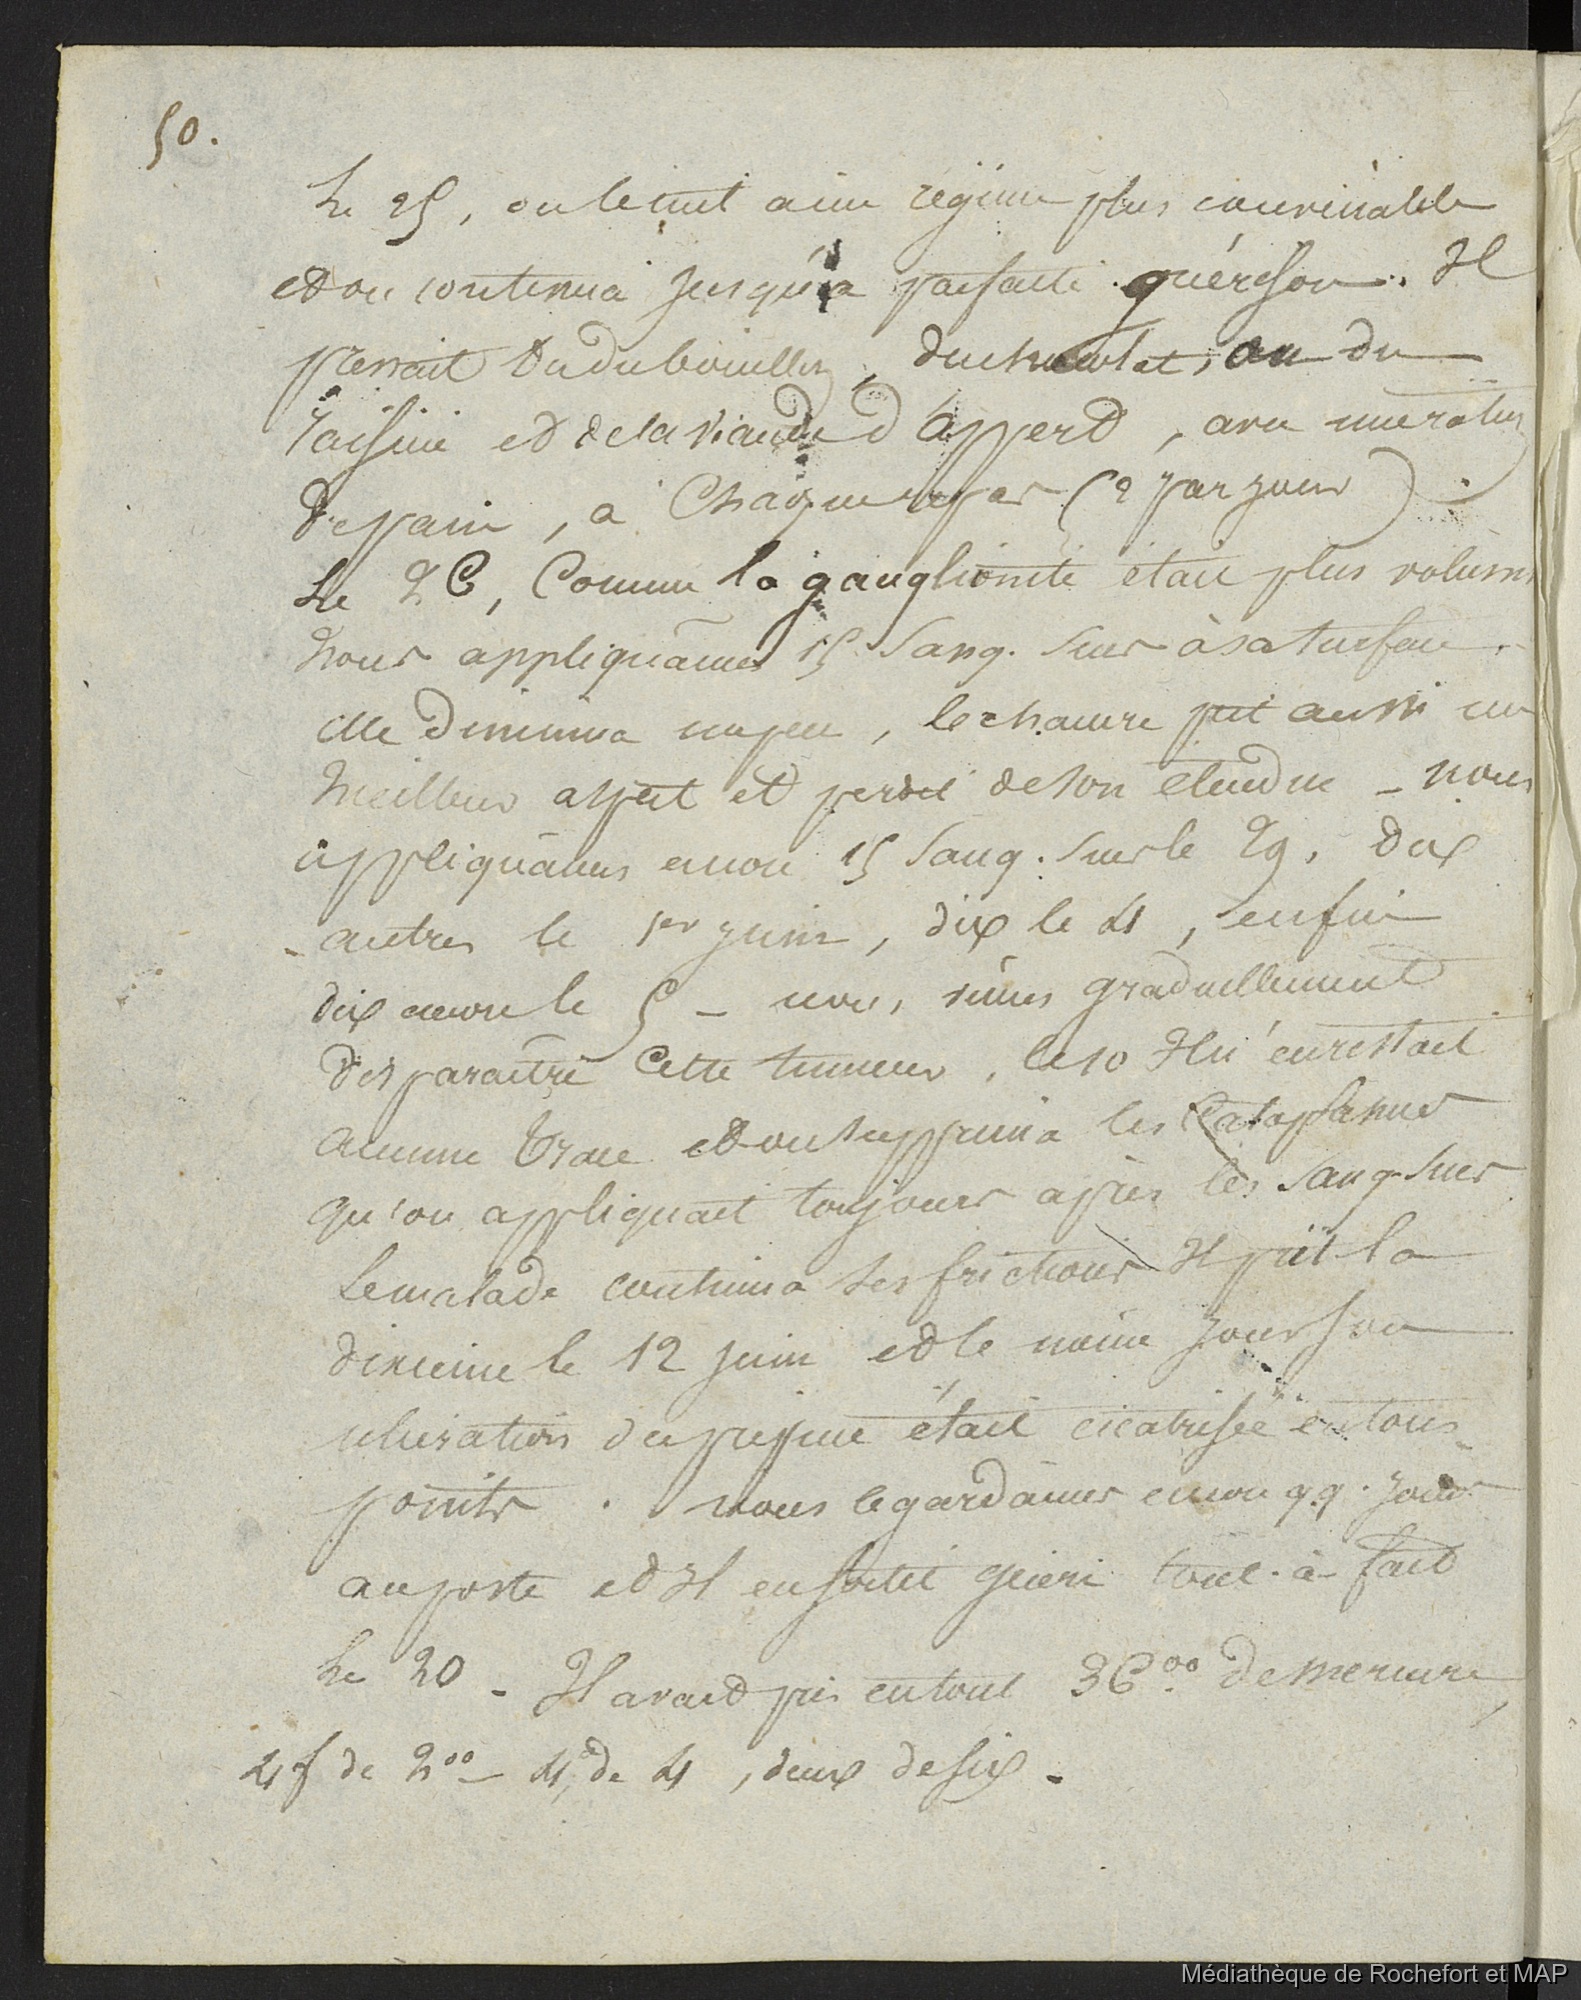 50.
Le 25, on le mit à un régime plus convenable
et on continua jusqu'à parfaite guérison. Il
prenait du bouillon, du chocolat, ou du
raisiné et de la viande d'appert, avec une ration
de pain, à Chaque repas (2 par jour).
Le 26, Comme la ganglionite était plus volum
nous appliquâmes 15 Sang. Sues à sa surface.
elle diminua un peu, le chancre prit aussi un
meilleur aspect et perdit de son étendue - nous
appliquâmes encore 15 Sang. Sues le 29, dix
autres le 1er juin, dix le 4, enfin
dix encore le 5 - nous vimes graduellement
disparaître Cette tumeur. le 10 Il n'en restait
aucune trace et on supprima les Cataplasmes
qu'on appliquait toujours après les Sang-Sues
Le malade continua ses frictions Il prit la
dixième le 12 juin et le même jour son
ulcération du prépuce était cicatrisée en tous
points. nous le gardâmes encore qq. jours
au poste et Il en sortit guéri tout-à-fait
Le 20 - Il avait pris en tout 36°° de mercure,
4 f de 2°° - 4 de 4, deux de six.
Médiathèque de Rochefort et MAP